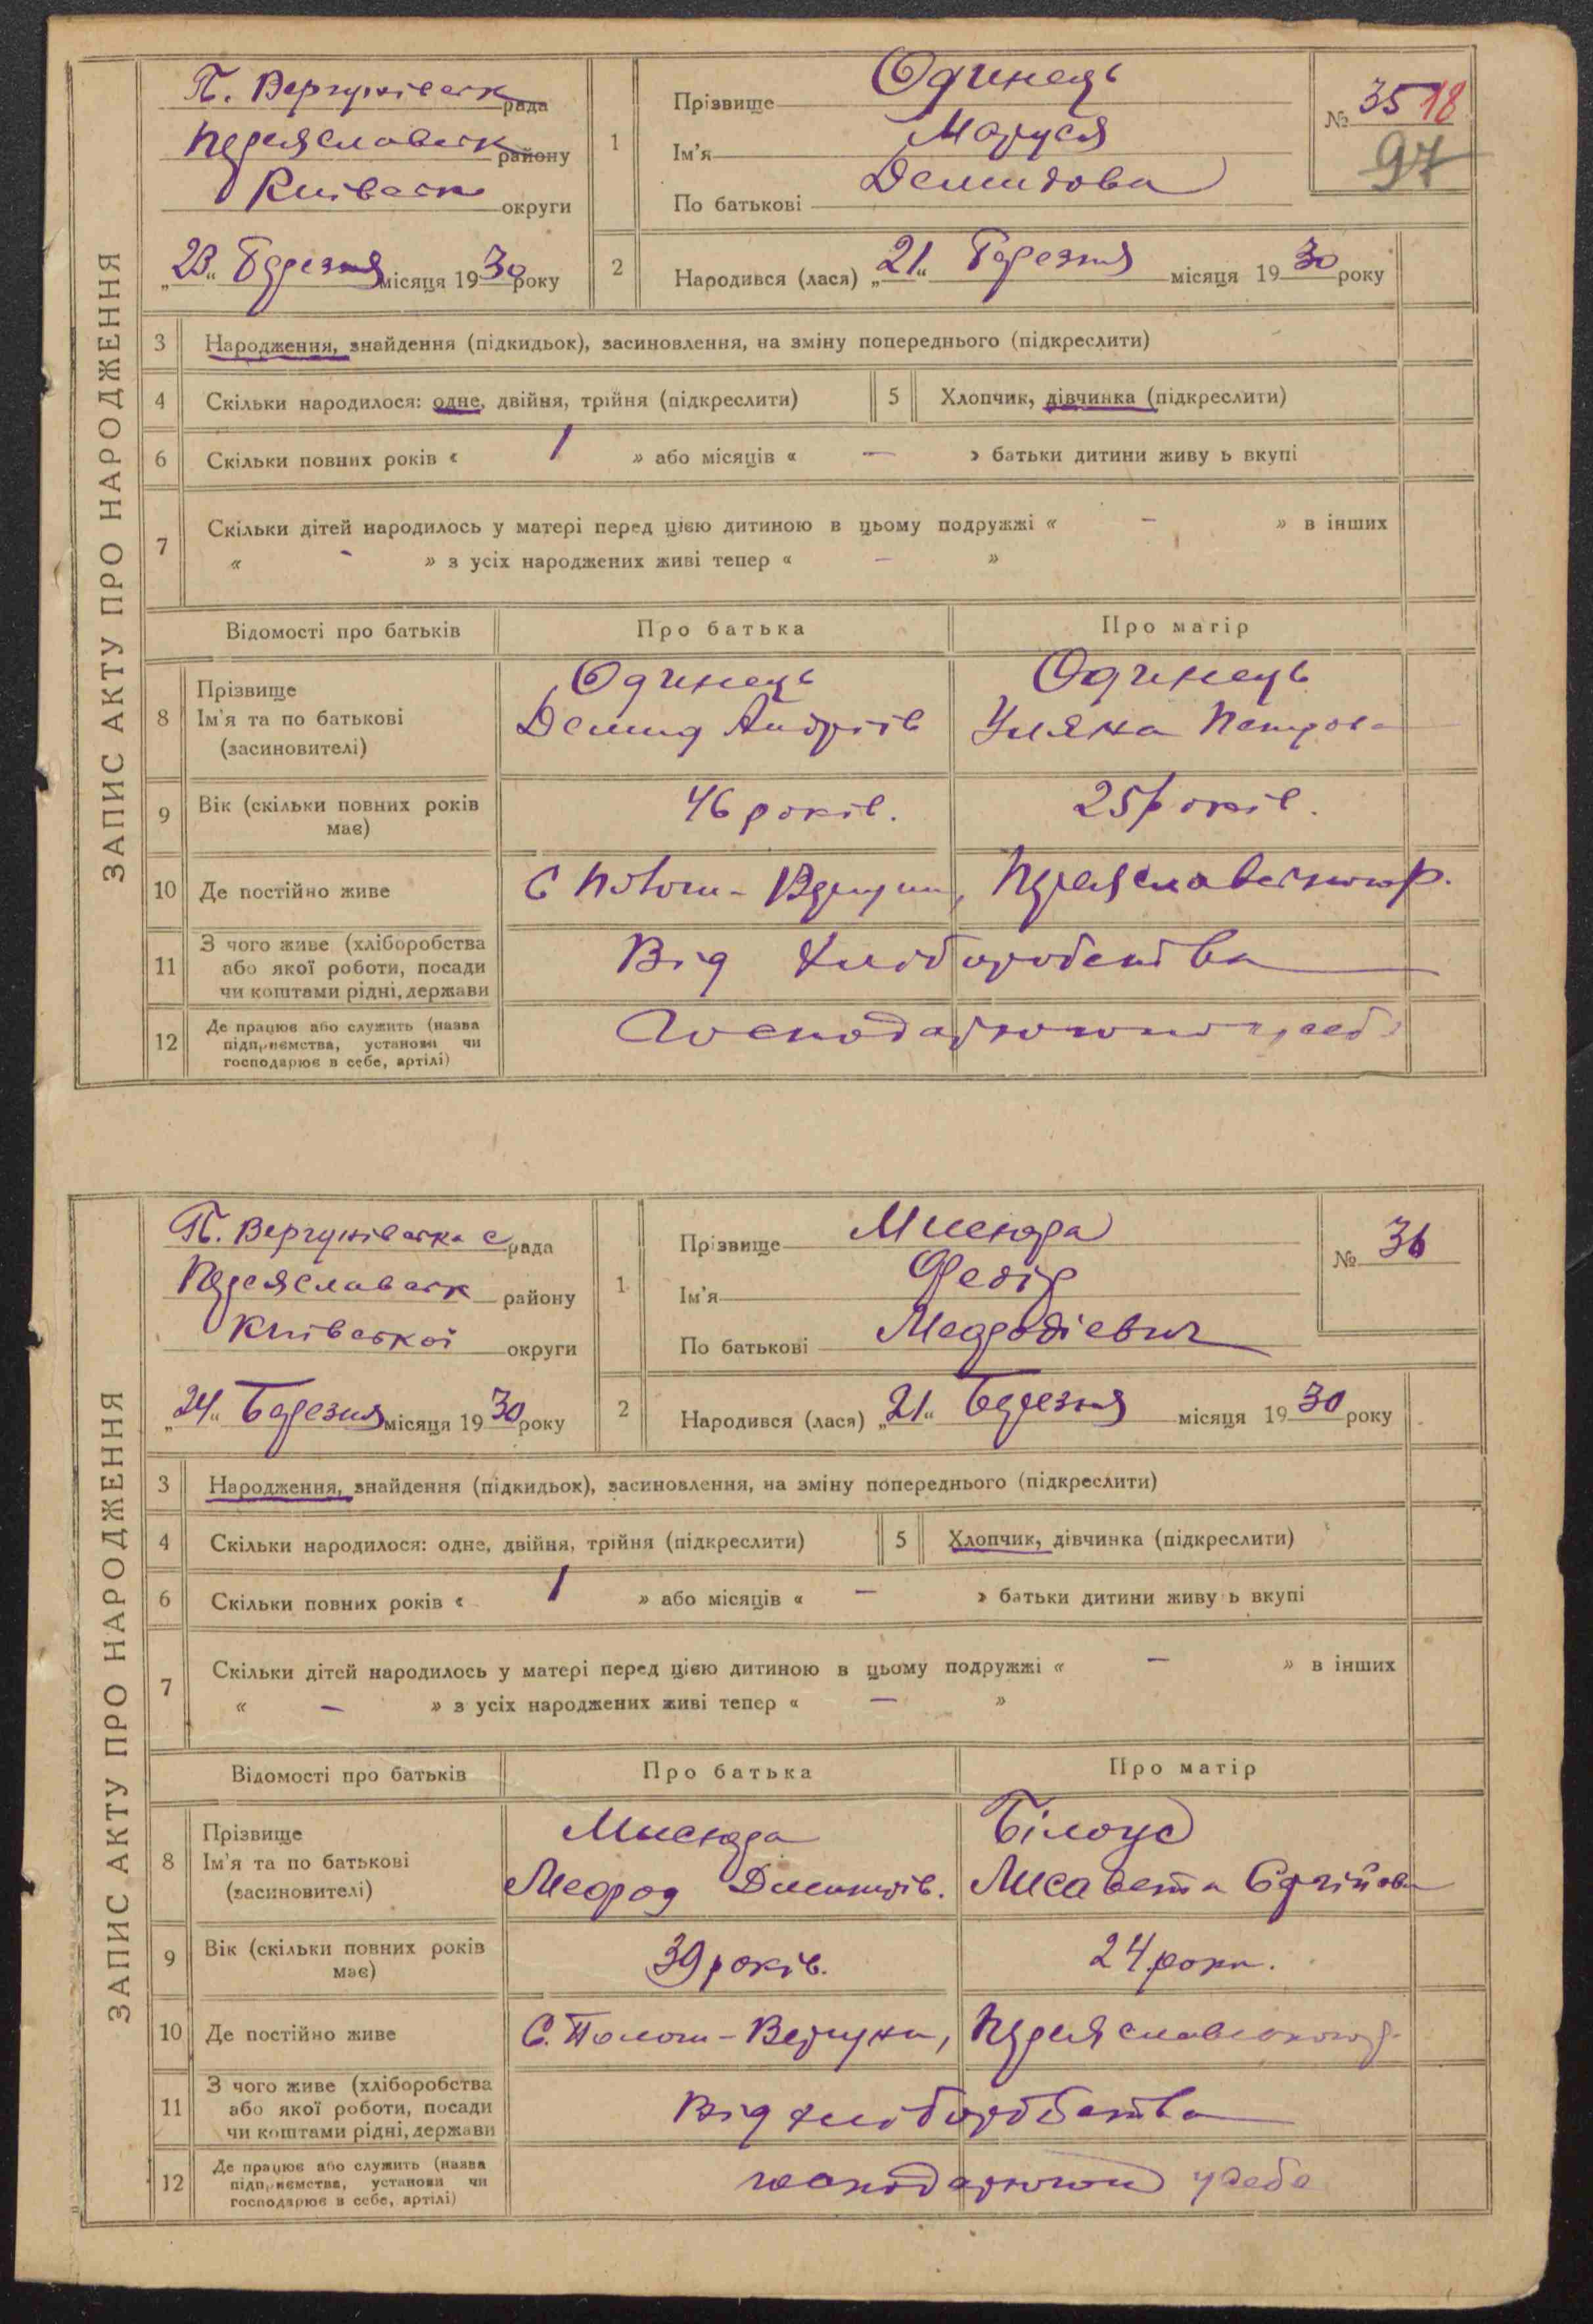 ЗАПИС АКТУ ПРО НАРОДЖЕННЯ
П. Вергунівськ рада
Переяславськ району
Київськ округи
„23“ Березня місяця 1930 року
1
Прізвище Одинець
Ім'я Маруся
По батькові Демидова
№ 35 18
97
2 Народився (лася) „21“ Березня місяця 1930 року
3 Народження, знайдення (підкидьок), засиновлення, на зміну попереднього (підкреслити)
4 Скільки народилося: одне, двійня, трійня (підкреслити) 5 Хлопчик, дівчинка (підкреслити)
6 Скільки повних років « 1 » або місяців « — » батьки дитини живу ь вкупі
7 Скільки дітей народилось у матері перед цією дитиною в цьому подружжі « — » в інших
« - » з усіх народжених живі тепер « — »
Відомості про батьків Про батька Про матір
8 Прізвище Одинець Одинець
Ім'я та по батькові Демид Андріїв Уляна Петрова
(засиновителі)
9 Вік (скільки повних років має) 46 років. 25 років.
10 Де постійно живе С Полош - Вергуни, Переяславського р.
11 З чого живе (хліборобства
або якої роботи, посади Від хліборобства
чи коштами рідні, держави
12 Де працює або служить (назва
підприємства, установи чи Господарюють у себе
господарює в себе, артілі)
ЗАПИС АКТУ ПРО НАРОДЖЕННЯ
П. Вергунівська с рада
Переяславськ району
Київської округи
„24“ Березня місяця 1930 року
1
Прізвище Мисюра
Ім'я Федір
По батькові Мефодієвич
№ 36
2 Народився (лася) „21“ Березня місяця 1930 року
3 Народження, знайдення (підкидьок), засиновлення, на зміну попереднього (підкреслити)
4 Скільки народилося: одне, двійня, трійня (підкреслити) 5 Хлопчик, дівчинка (підкреслити)
6 Скільки повних років « 1 » або місяців « — » батьки дитини живу ь вкупі
7 Скільки дітей народилось у матері перед цією дитиною в цьому подружжі « — » в інших
« — » з усіх народжених живі тепер « — »
Відомості про батьків Про батька Про матір
8 Прізвище Мисюра Білоус
Ім'я та по батькові Мефод Дмитрів. Лисавета
(засиновителі)
9 Вік (скільки повних років має) 39 років. 24 роки.
10 Де постійно живе С. Полош - Вергуни, Переяславського р.
11 З чого живе (хліборобства
або якої роботи, посади Від хліборобства
чи коштами рідні, держави
12 Де працює або служить (назва
підприємства, установи чи господарюють у себе
господарює в себе, артілі)